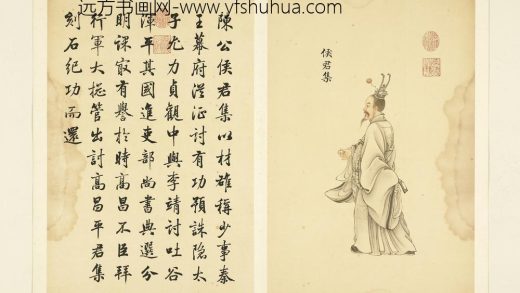 远方书画网-www.yfshuhua.com
侯君集
陳公侯君集以材雄稱少事秦
王幕府從征討有功預誅隐太
子尤力貞觀中與李靖討吐谷
渾平其國進吏部尚書典選分
明課最有譽於時高昌不臣拜
行軍大總管出討高昌平君集
刻石紀功而還